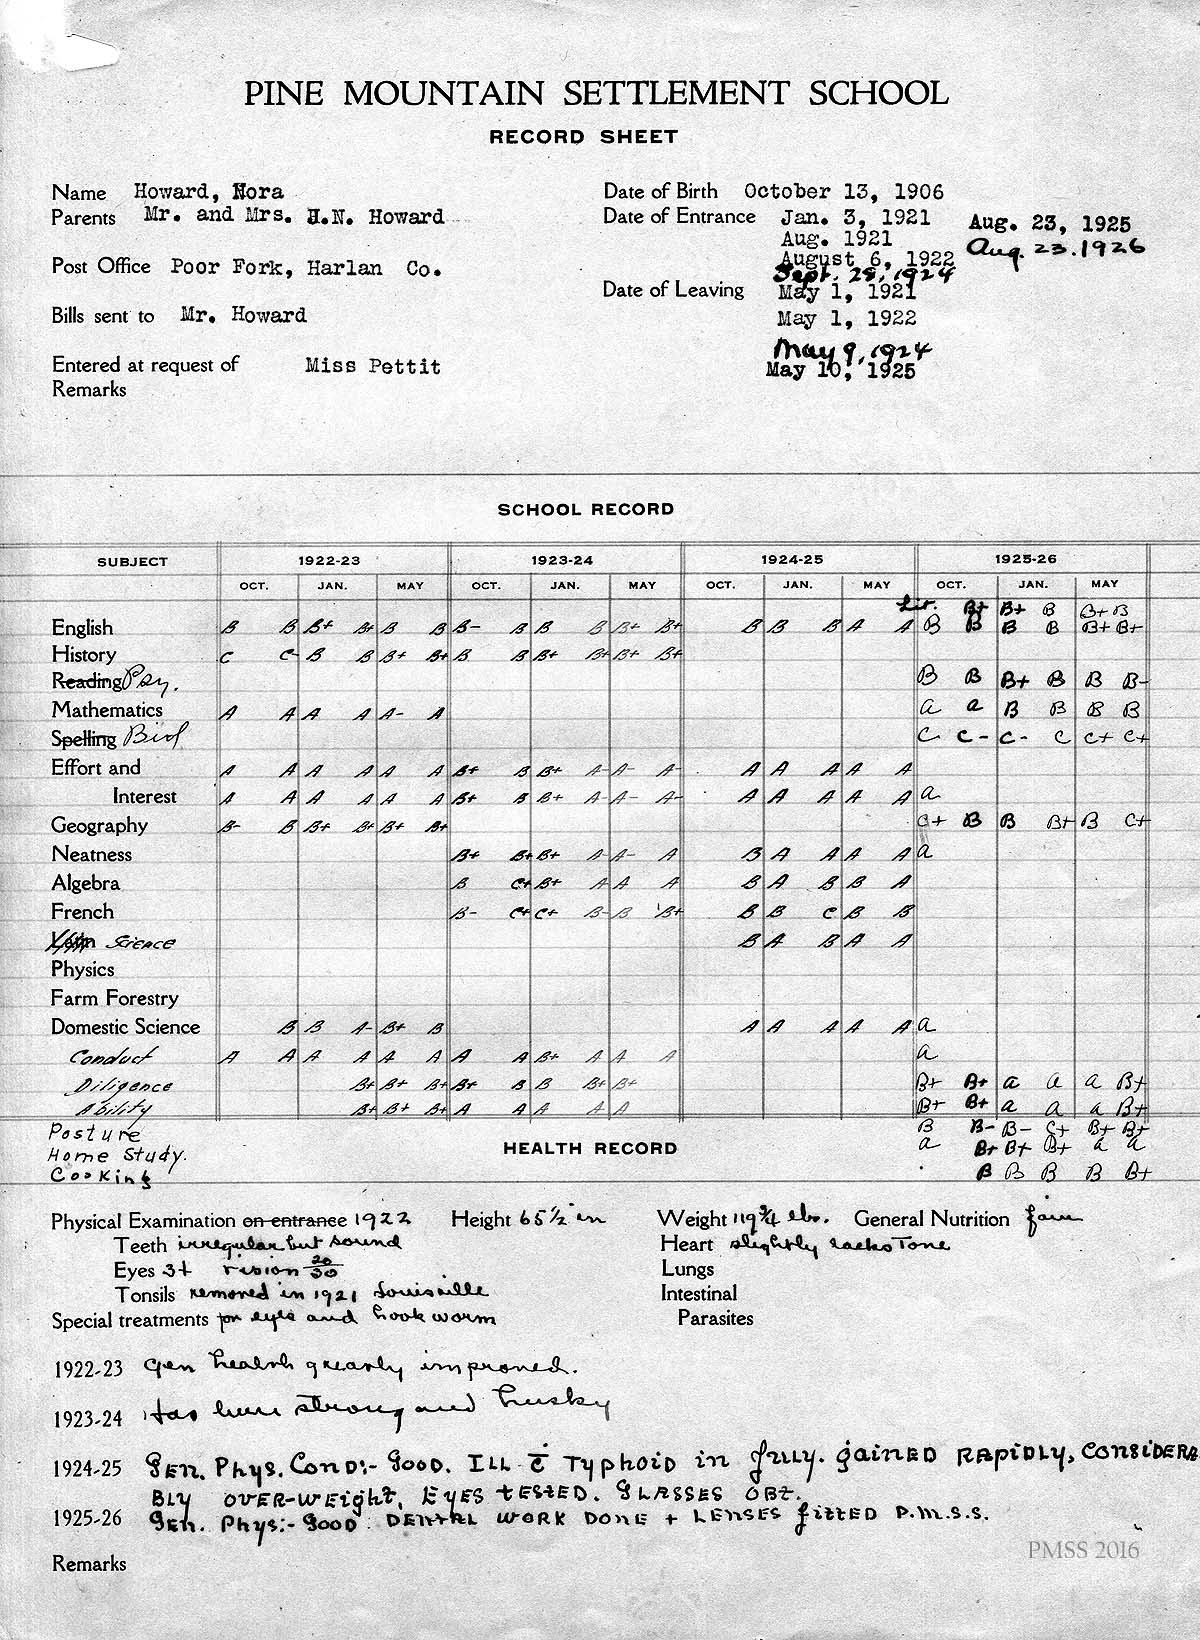 PINE MOUNTAIN SETTLEMENT SCHOOL
RECORD SHEET
Name Howard, Nora
Parents Mr. and Mrs. H.N. Howard
Post Office Poor Fork, Harlan Co.
Bills sent to Mr. Howard
Entered at request of Miss Pettit
Remarks
Date of Birth October 13, 1906
Date of Entrance Jan. 3, 1921 Aug. 23, 1925
Aug. 1921 Aug. 23. 1926
August 6, 1922
Sept. 28, 1924
Date of Leaving May 1, 1921
May 1, 1922
May 9, 1924
May 10, 1925
SCHOOL RECORD
SUBJECT 1922-23 1923-24 1924-25 1925-26
OCT. JAN. MAY OCT. JAN. MAY OCT. JAN. MAY OCT. JAN. MAY
Lit. B+ B+ B B+ B
English B B B+ B+ B B B- B B B B+ B+ B B B A A B B B B B+ B+
History C C- B B B+ B+ B B B+ B+ B+ B+
Reading Psy. B B B+ B B B-
Mathematics A A A A A- A a a B B B B
Spelling Biol C C- C- C C+ C+
Effort and A A A A A A B+ B B+ A- A- A- A A A A A
Interest A A A A A A B+ B B+ A- A- A- A A A A A a
Geography B- B B+ B+ B+ B+ C+ B B B+ B C+
Neatness B+ B+ B+ A- A- A B A A A A a
Algebra B C+ B+ A A A B A B B A
French B- C+ C+ B- B B+ B B C B B
Science B A B A A
Physics
Farm Forestry
Domestic Science B B A- B+ B A A A A A a
Conduct A A A A A A A A B+ A A A a
Diligence B+ B+ B+ B+ B B B+ B+ B+ B+ a a a B+
Ability B+ B+ B+ A A A A A B+ B+ a a a B+
Posture B B- B- C+ B+ B+
Home Study. a B+ B+ B+ a a
Cooking B B B B B+
HEALTH RECORD
Physical Examination on entrance 1922 Height 65½ in Weight 119¾ lbs. General Nutrition fair
Teeth irregular but sound Heart slightly lacks Tone
Eyes 3+ vision 20/30 Lungs
Tonsils removed in 1921 Louisville Intestinal
Special treatments for eyes and hookworm Parasites
1922-23 Gen health greatly improved.
1923-24 Has been strong and husky
1924-25 Gen. Phys. Cond:- Good. Ill c̄ Typhoid in July. gained rapidly, considera
bly over-weight. Eyes tested. Glasses obt.
1925-26 Gen. Phys:- Good. Dental work done + lenses fitted P.M.S.S.
Remarks
PMSS 2016